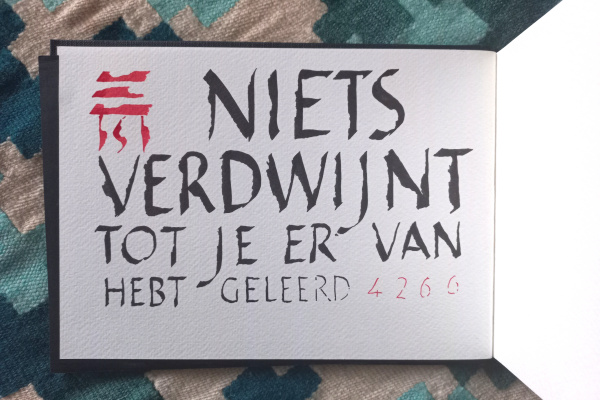 NIETS
VERDWIJNT
TOT JE ER VAN
HEBT GELEERD 4266